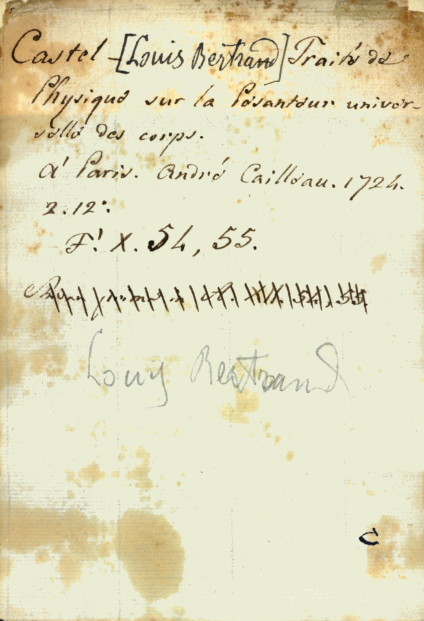 Castel - [Louis Bertrand] Traité de
Physique sur la Pésanteur univer-
selle des corps.
A' Paris. André Cailleau. 1724.
2. 12°.
F! X. 54, 55.
Louis Bertrand
C